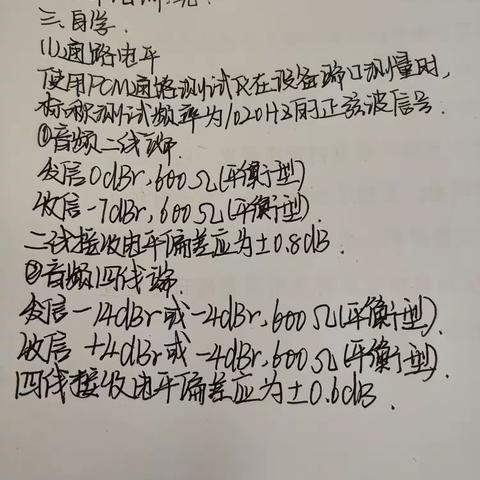 三.自学.
(1)通路电平
使用PCM通路测试仪在设备端口测量时,
标称测试频率为1020Hz的正弦波信号.
①音频二线端.
发信0dBr,600Ω(平衡型)
收信-7dBr,600Ω(平衡型).
二线接收电平偏差应为±0.8dB.
②音频四线端.
发信-14dBr或-4dBr,600Ω(平衡型).
收信+4dBr或-4dBr,600Ω(平衡型).
四线接收电平偏差应为±0.6dB.